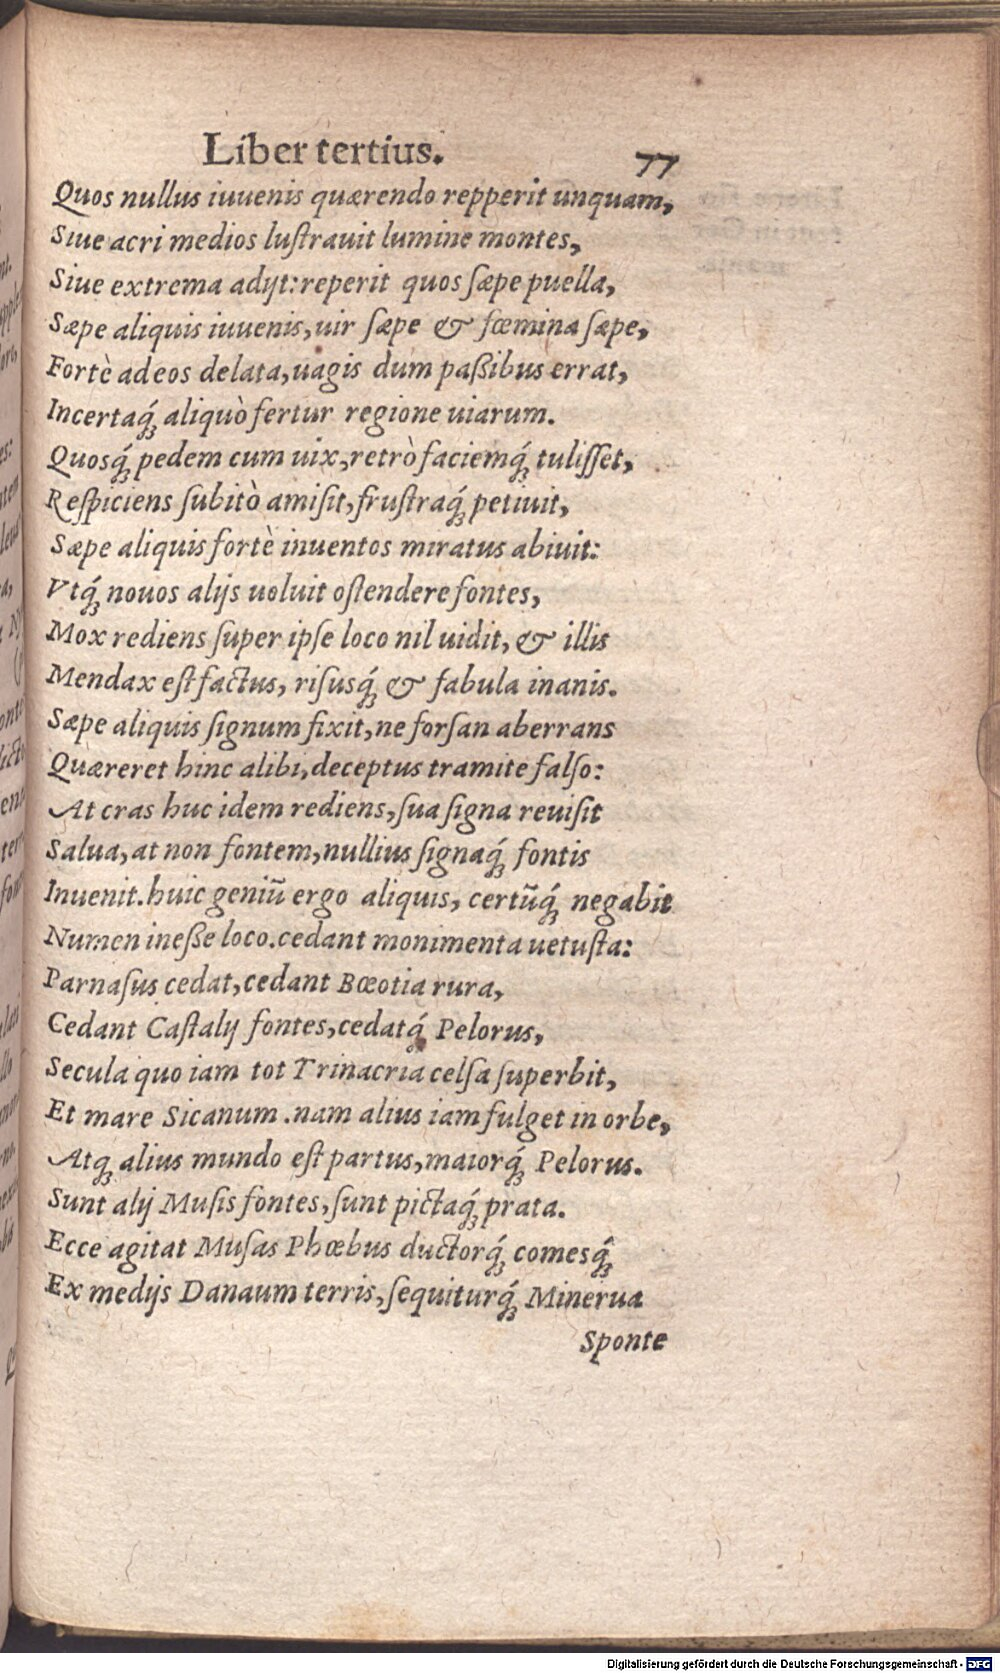 Liber tertius. 77
Quos nullus iuuenis quærendo repperit unquam,
Siue acri medios lustrauit lumine montes,
Siue extrema adijt: reperit quos sæpe puella,
Sæpe aliquis iuuenis, uir sæpe & fœmina sæpe,
Fortè ad eos delata, uagis dum paßibus errat,
Incertaq́ꝫ aliquò fertur regione uiarum.
Quosq́ꝫ pedem cum uix, retrò faciemq́ꝫ tulisset,
Respiciens subitò amisit, frustraq́ꝫ petiuit,
Sæpe aliquis fortè inuentos miratus abiuit:
Vtq́ꝫ nouos alijs uoluit ostendere fontes,
Mox rediens super ipse loco nil uidit, & illis
Mendax est factus, risusq́ꝫ & fabula inanis.
Sæpe aliquis signum fixit, ne forsan aberrans
Quæreret hinc alibi, deceptus tramite falso:
At cras huc idem rediens, sua signa reuisit
Salua, at non fontem, nullius signaq́ꝫ fontis
Inuenit. huic geniū ergo aliquis, certūq́ꝫ negabit
Numen ineße loco. cedant monimenta uetusta:
Parnasus cedat, cedant Bœotia rura,
Cedant Castalij fontes, cedatq́ꝫ Pelorus,
Secula quo iam tot Trinacria celsa superbit,
Et mare Sicanum. nam alius iam fulget in orbe,
Atqꝫ alius mundo est partus, maiorq́ꝫ Pelorus.
Sunt alij Musis fontes, sunt pictaq́ꝫ prata.
Ecce agitat Musas Phœbus ductorq́ꝫ comesq́ꝫ
Ex medijs Danaum terris, sequiturq́ꝫ Minerua
Sponte
Digitalisierung gefördert durch die Deutsche Forschungsgemeinschaft - DFG